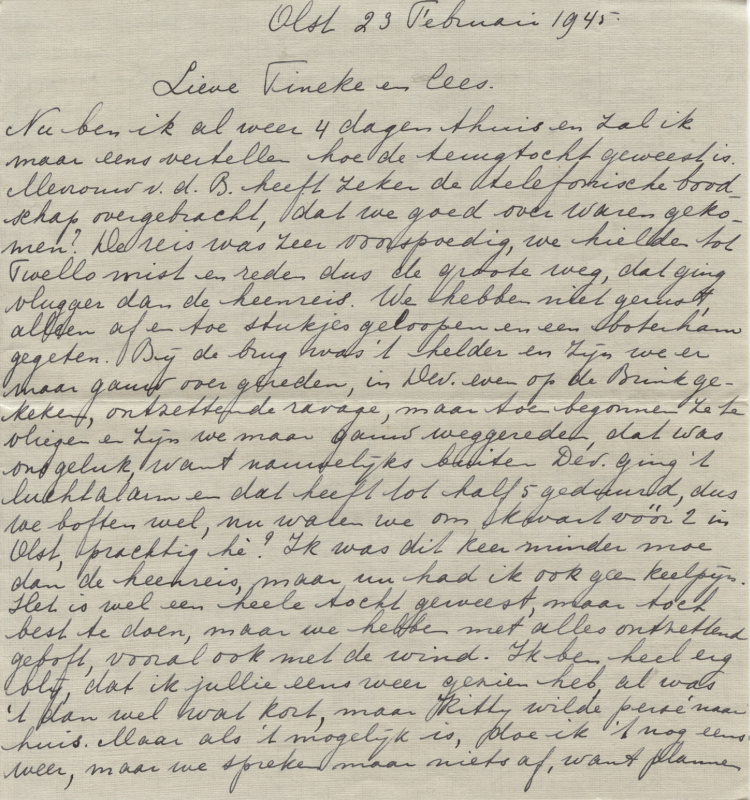 Olst 23 Februari 1945.
Lieve Tineke en Cees.
Nu ben ik al weer 4 dagen thuis en zal ik
maar eens vertellen hoe de terugtocht geweest is.
Mevrouw v. d. B. heeft zeker de telefonische bood-
schap overgebracht, dat we goed over waren geko-
men? De reis was zeer voorspoedig, we hielden tot
Twello mist en reden dus de groote weg, dat ging
vlugger dan de heenreis. We hebben niet gerust,
alleen af en toe stukjes geloopen en een boterham
gegeten. Bij de brug was 't helder en zijn we er
maar gauw over gereden, in Dev. even op de Brink ge-
keken, ontzettende ravage, maar toen begonnen ze te
vliegen en zijn we maar gauw weggereden, dat was
ons geluk, want nauwelijks buiten Dev. ging 't
luchtalarm en dat heeft tot half 5 geduurd, dus
we boften wel, nu waren we om kwart vóór 2 in
Olst, prachtig hè? Ik was dit keer minder moe
dan de heenreis, maar nu had ik ook geen keelpijn.
Het is wel een heele tocht geweest, maar toch
best te doen, maar we hebben met alles ontzettend
geboft, vooral ook met de wind. Ik ben heel erg
blij, dat ik jullie eens weer gezien heb, al was
't dan wel wat kort, maar Kitty wilde persé naar
huis. Maar als 't mogelijk is, doe ik 't nog eens
weer, maar we spreken maar niets af, want plannen